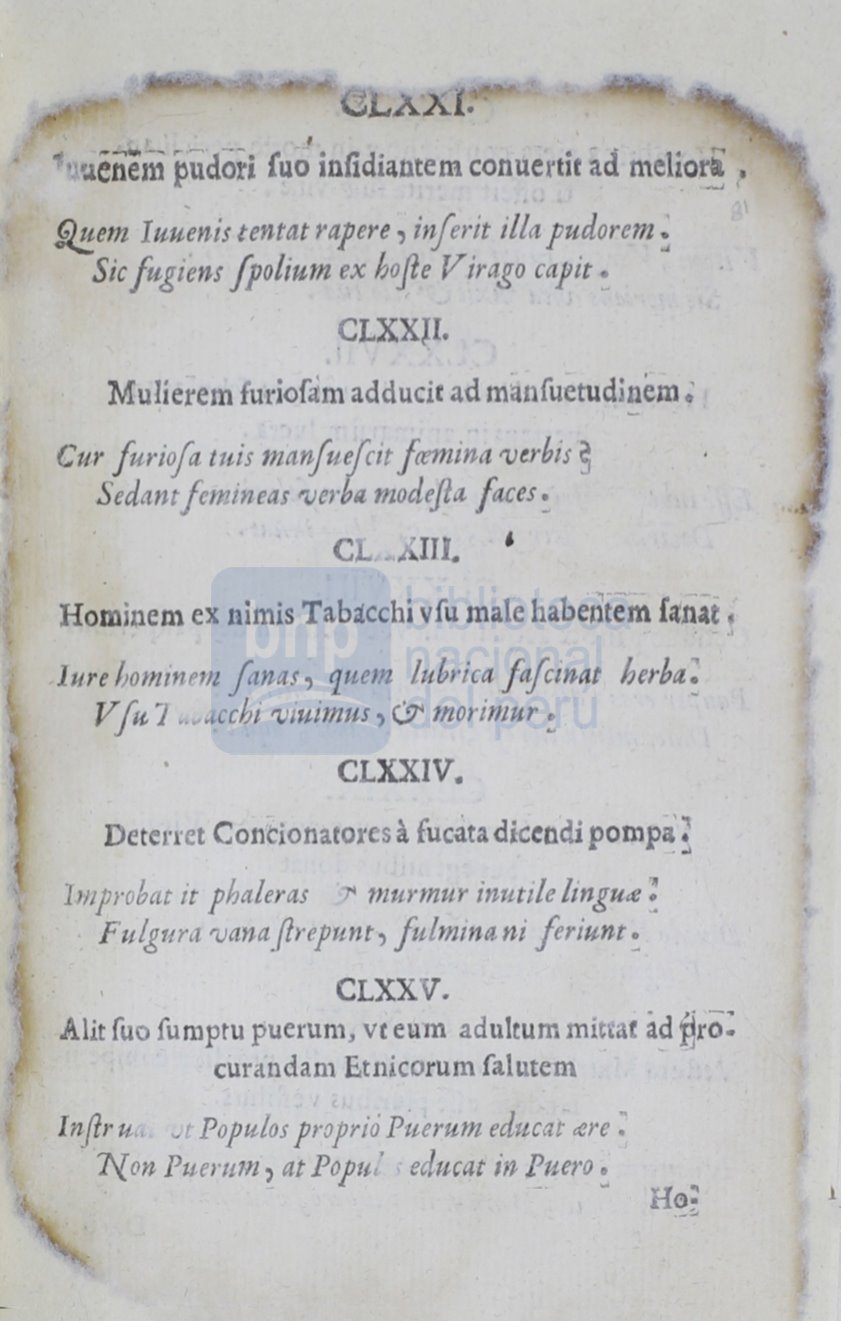 CLXXI.
pudori ſuo inſidiantem conuertit ad meliora.
Quem Iuuenis tentat rapere, inſerit illa pudorem.
Sic fugiens ſpolium ex hoſte Virago capit.
CLXXII.
Mulierem furioſam adducit ad manſuetudinem.
Cur furioſa tuis manſueſcit fœmina verbis?
Sedant femineas verba modeſta faces.
CL XIII.
Hominem ex nimis Tabacchi vſu male habentem ſanat.
Iure hominem ſanas, quem lubrica faſcinat herba.
Vſu viuimus, & morimur.
CLXXIV.
Deterret Concionatores à fucata dicendi pompa.
Improbat it phaleras & murmur inutile linguæ:
Fulgura vana ſtrepunt, fulmina ni feriunt.
CLXXV.
Alit ſuo ſumptu puerum, vt eum adultum mittat ad pro-
curandam Etnicorum ſalutem
vt Populos propriò Puerum educat ære:
Non Puerum, at educat in Puero.
Ho-
bnp biblioteca
nacional
del perú